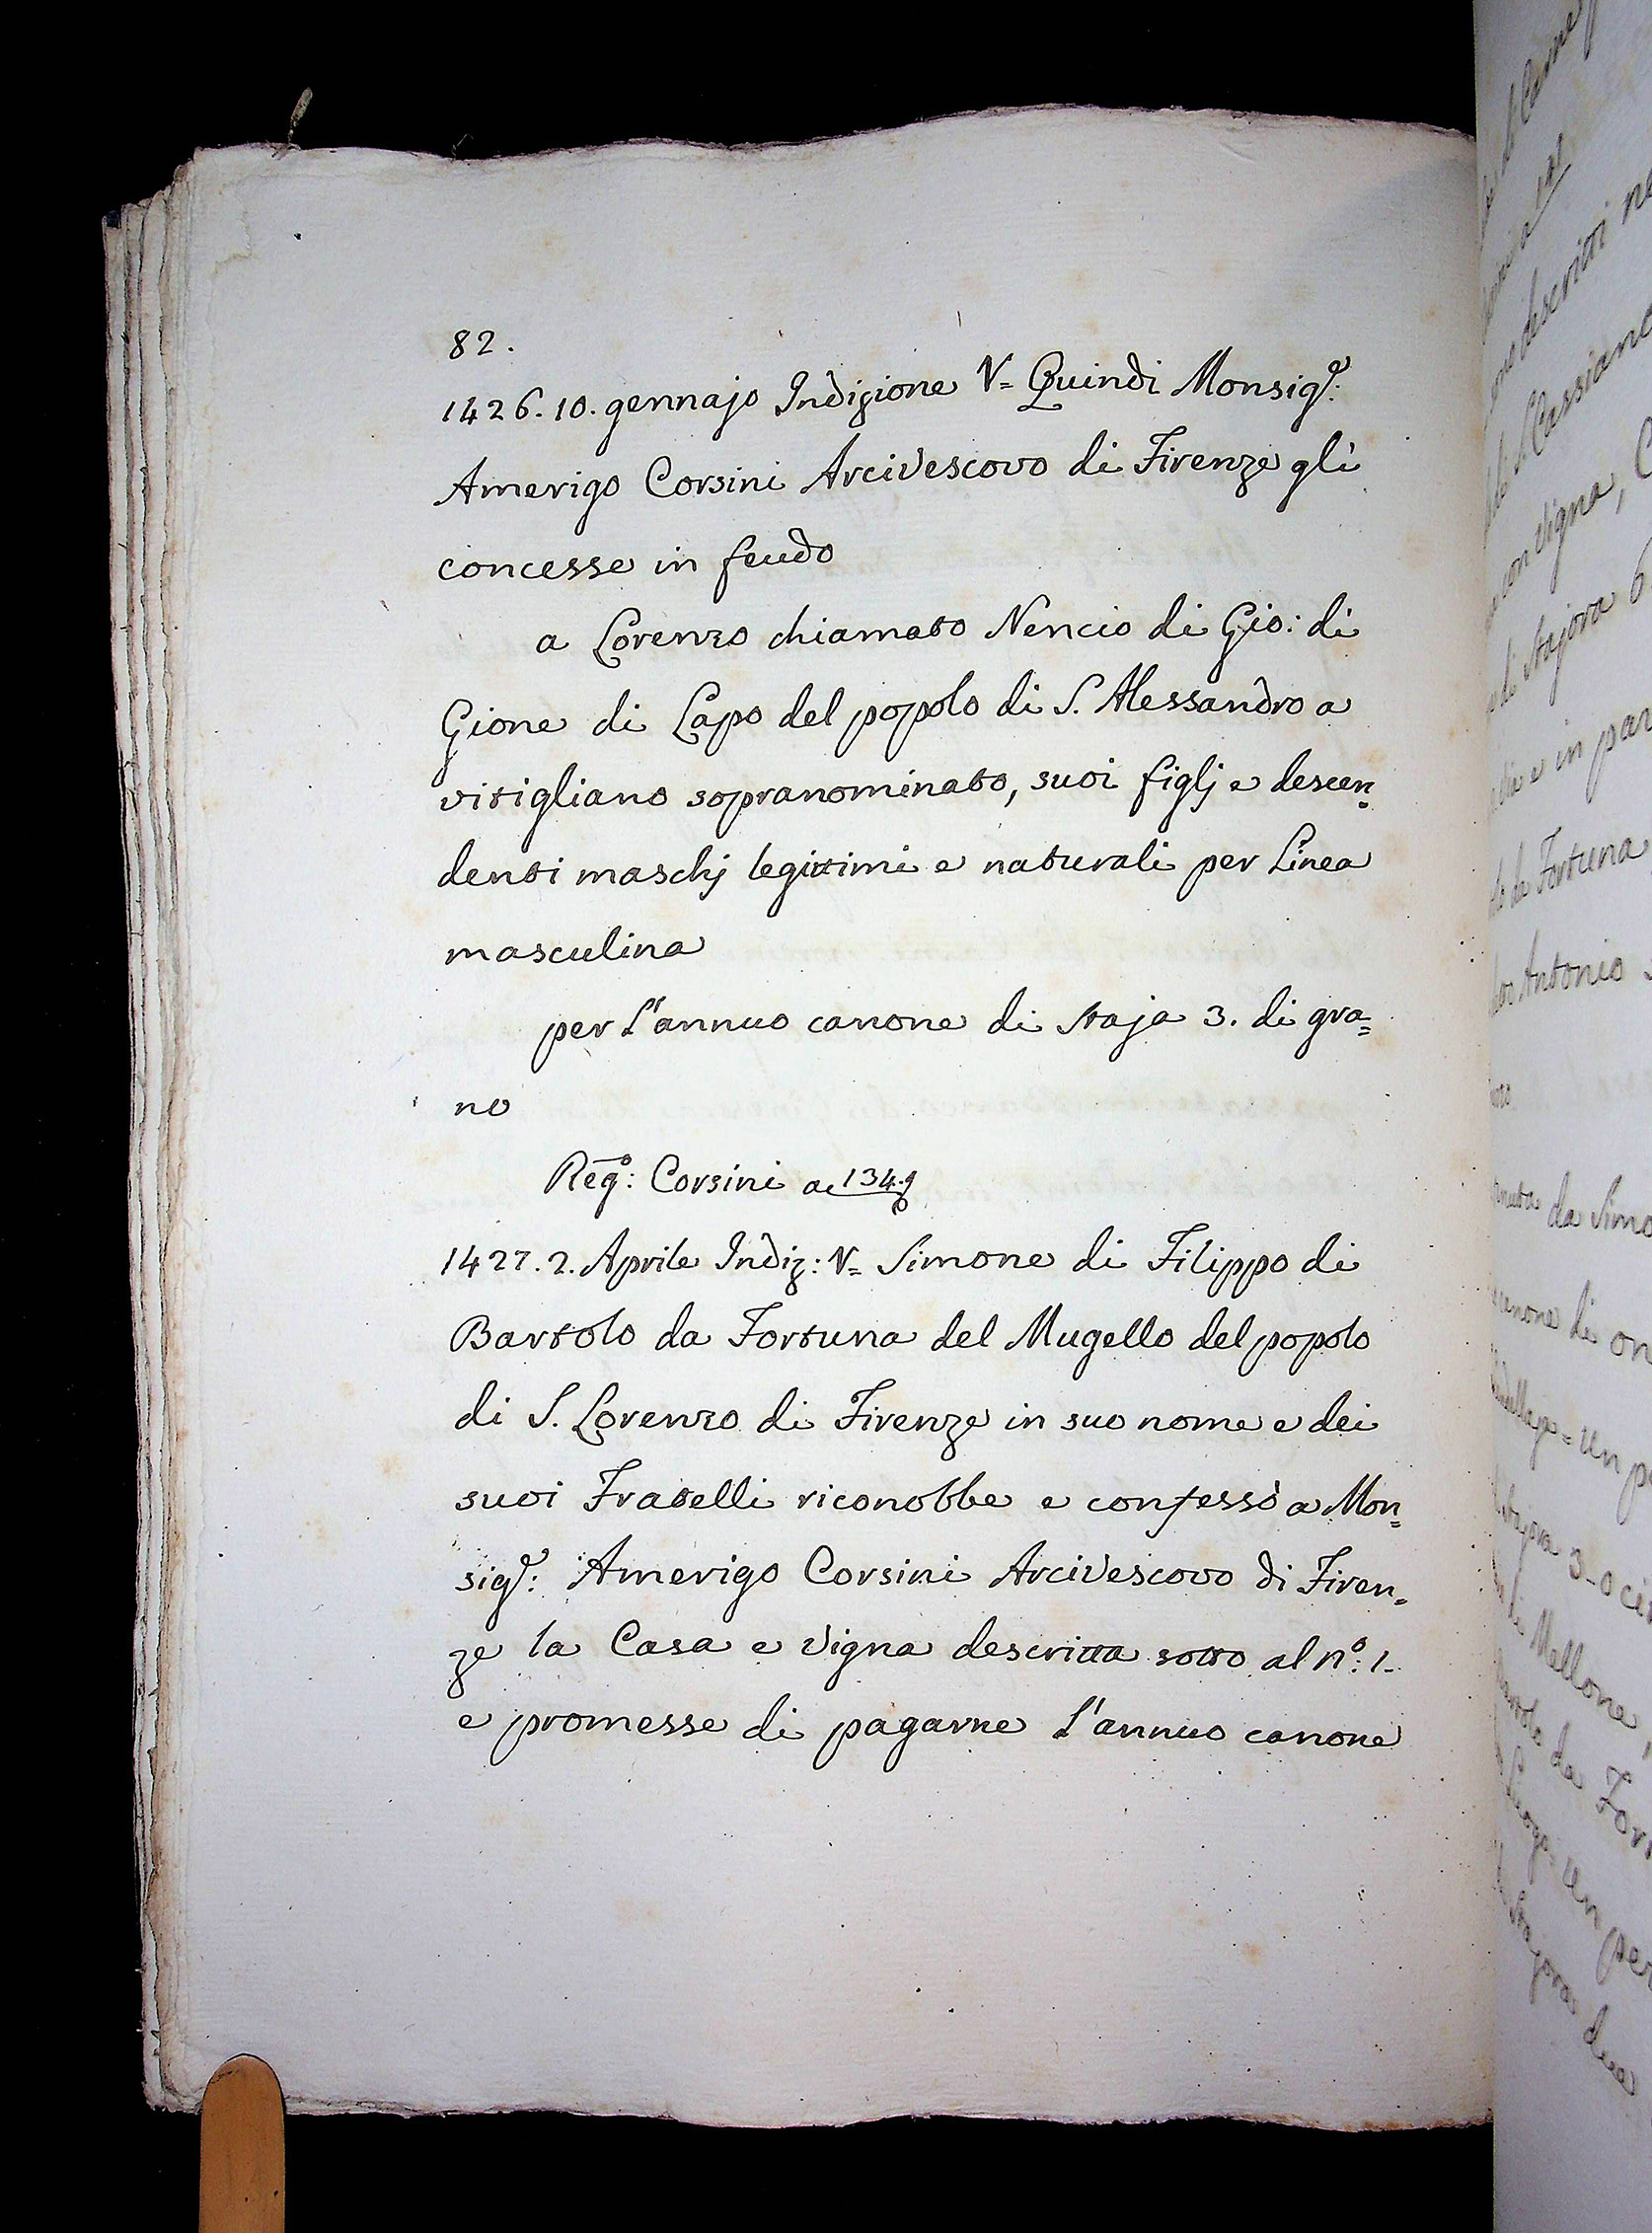 82.
1426. 10. gennajo Indizione V= Quindi Monsig.r:
Amerigo Corsini Arcivescovo di Firenze gli
concesse in feudo
a Lorenzo chiamato Nencio di Gio: di
Gione di Lapo del popolo di S. Alessandro a
vitigliano sopranominato, suoi figlj e descen=
denti maschj legittimi e naturali per Linea
masculina
per l'annuo canone di staja 3. di gra=
no
Reg.o: Corsini a 134.
1427. 2. Aprile Indiz: V= Simone di Filippo di
Bartolo da Fortuna del Mugello del popolo
di S. Lorenzo di Firenze in suo nome e dei
suoi Fratelli riconobbe e confessò a Mon=
sig.r: Amerigo Corsini Arcivescovo di Firen=
ze la Casa e Vigna descritta sotto al n.o: 1.
e promesse di pagarne l'annuo canone
descritti
Cassiano
vigna,
di stajora 6
e in par
da Fortuna
Antonio
da Simo
canone di on
un p
3-0
di Mellone,
da For
un per
due